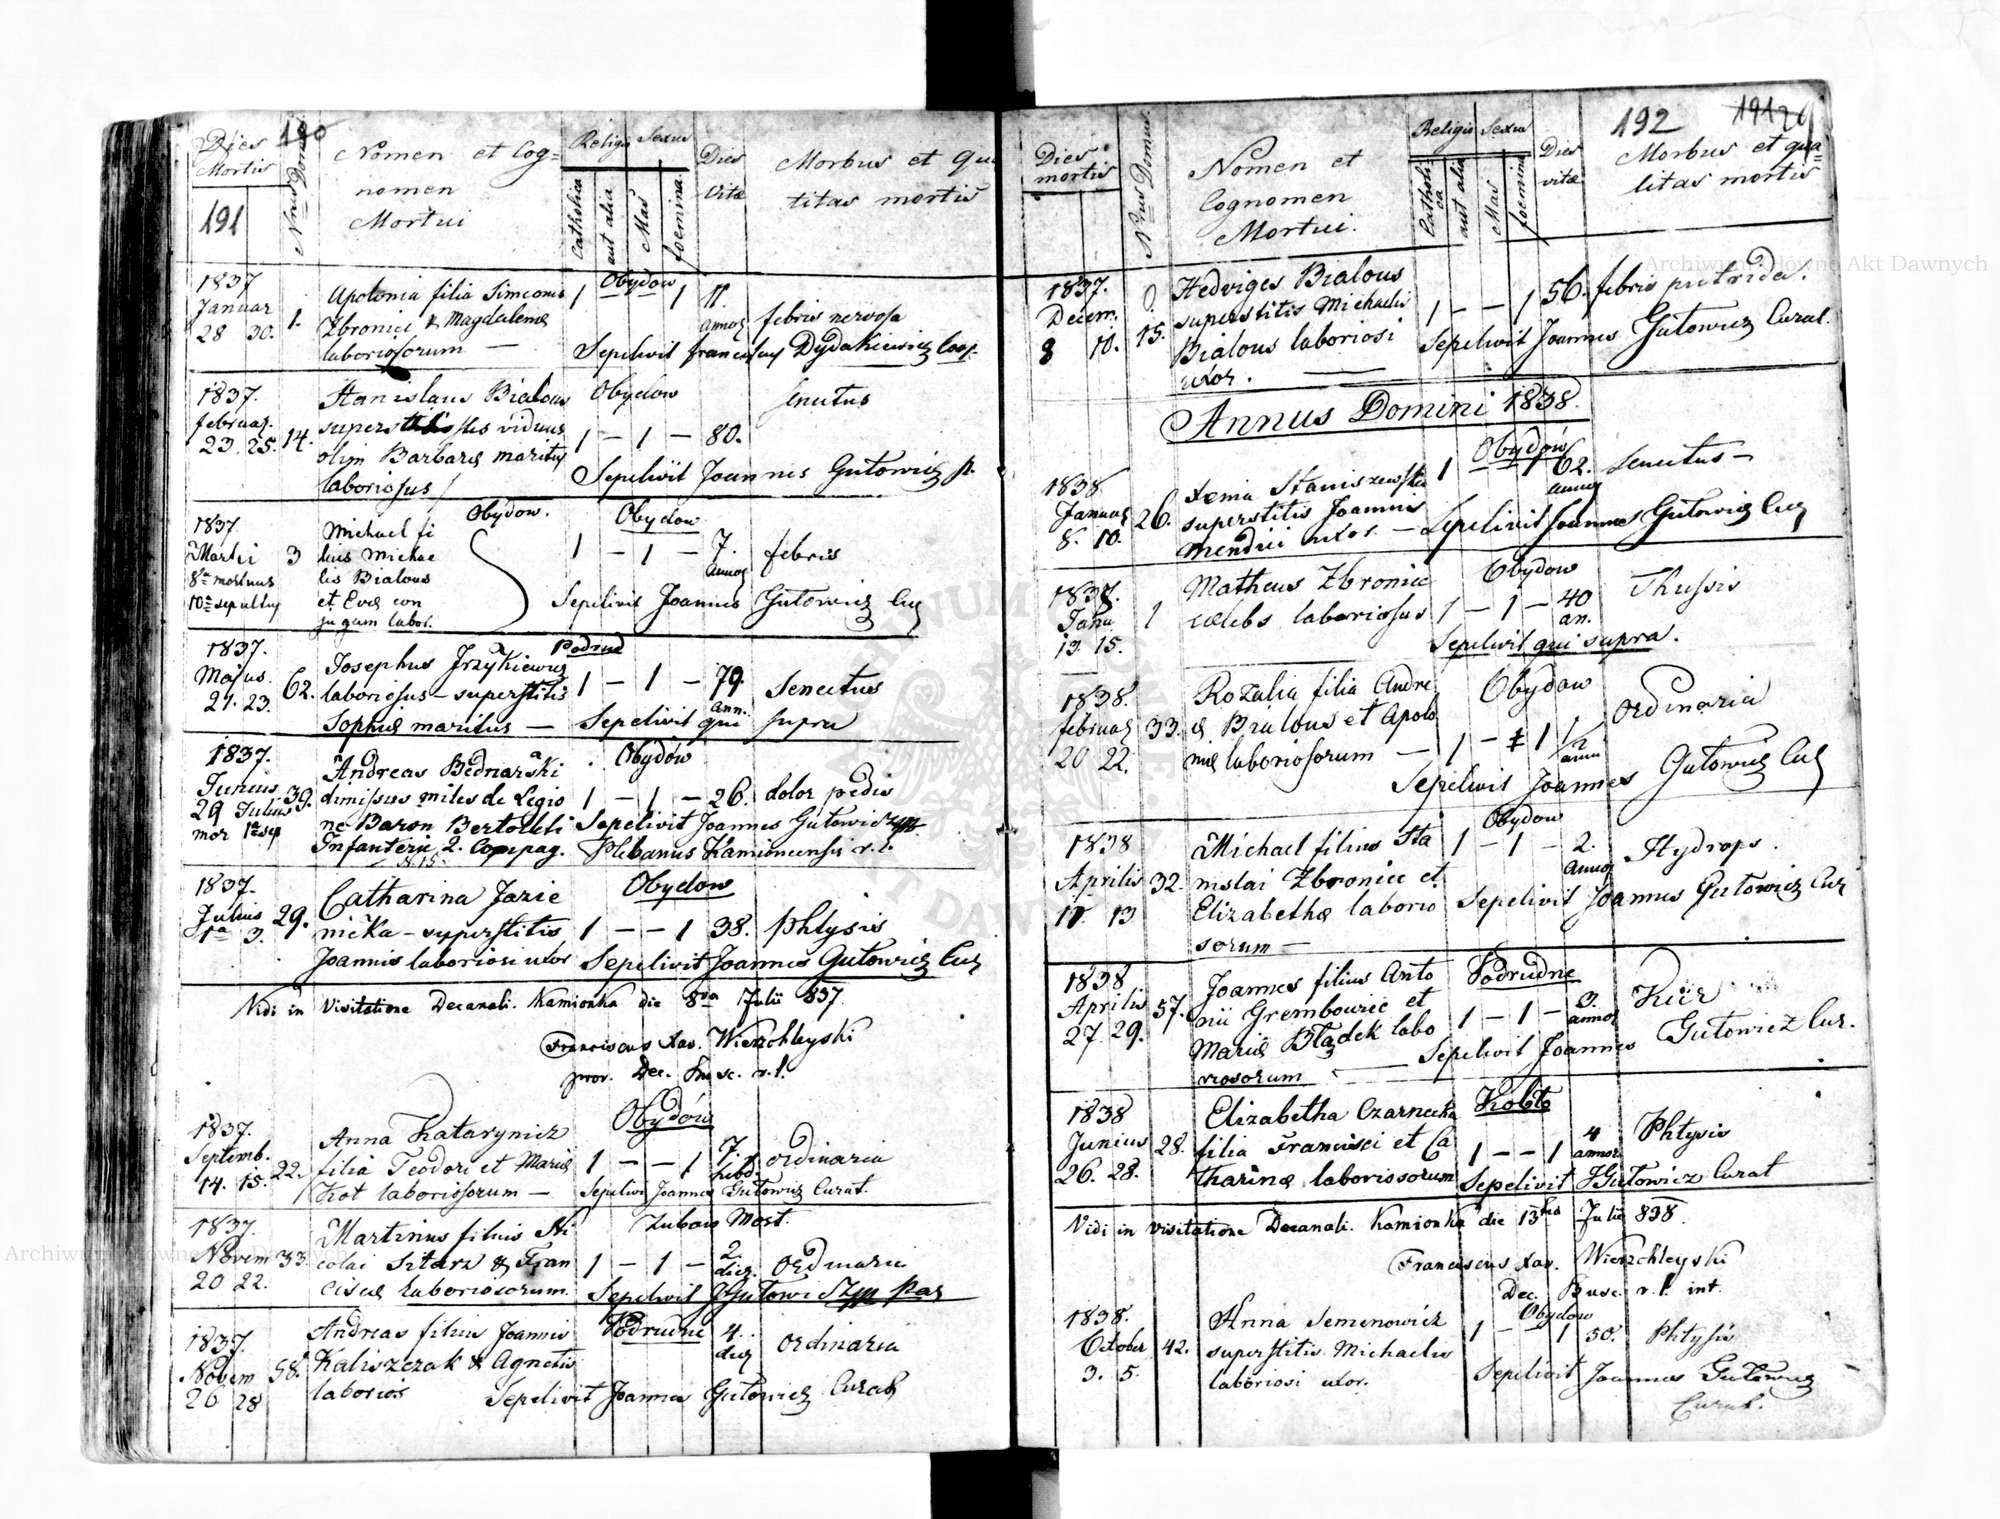 Dies Mortis
190
191
Nrus Domus
Nomen et Cog=
nomen
Mortui
Religio
Catholica
aut alia
Sexus
Mas
foemina
Dies
Vitæ
Morbus et Qua
litas mortis
1837
Januar
28 30.
1.
Apolonia filia Simeonis
Zbroniec & Magdalenæ
laboriosorum —
Obydow
1 1 11.
annos
febris nervosa
Sepelivit franciscus Dydakiewicz Coop.
1837.
februar.
23. 25.
14.
Stanislaus Bialous
superstes viduus
olim Barbaræ maritus
laboriosus
Obydow
1 – 1 – 80.
senectus
Sepelivit Joannes Gutowicz p.
Obydow.
1837.
Martii
8va mortuus
10ma sepultus
3
Michael fi
lius Michae
lis Bialous
et Evæ con
jugum labor.
Obydow
1 – 1 – 7.
annos
febris
Sepelivit Joannes Gutowicz Cur
1837.
Majus.
21. 23.
62.
Josephus Jrzykiewicz
laboriosus – superstitis
Sophiæ maritus —
Podrud
1 – 1 – 79.
ann.
Senectus
Sepelivit qui supra
1837.
Junius
29 Julius
mor 1a sep
39.
Andreas Bednarski
dimissus miles de Legio
ne Baron Bertoletti
Infanterie 2. Compag.
N. 15.
Obydów
1 – 1 – 26.
dolor pedis
Sepelivit Joannes Gutowicz
Plebanus Kamioncensis r. l.
1837.
Julius
1a 3.
29.
Catharina Jazie
nicka – superstitis
Joannis laboriosi uxor
Obydow
1 – – 1 38.
phtysis
Sepelivit Joannes Gutowicz Cur
Vidi in Visitatione Decanali. Kamionka die 8va Julii 837.
Franciscus Xav. Wierzchleyski
prov. Dec. Busc. r. l.
1837.
Septemb.
14. 15.
22.
Anna Katarynicz
filia Teodori et Mariæ
Kot laboriosorum —
Obydów
1 – – 1 7.
hebd.
ordinaria
Sepelivi Joannes Gutowicz Curat.
1837.
Novem
20 22.
33.
Martinus filius Ni
colai Sztarz & Fran
ciscæ Laboriosorum.
Zubow Most.
1 – 1 – 2.
dies
ordinaria
Sepelivit JGutowicz Par
1837.
Novem
26 28
58.
Andreas filius Joannis
Kaliszczak & Agnetis
laborios
Podrudne
4.
dies
ordinaria
Sepelivit Joannes Gutowicz Curat
Dies
mortis
Nrus Domus.
Nomen et
Cognomen
Mortui.
Religio
Catholi
ca
aut alia
Sexus
Mas
foemina
Dies
vitæ
192
191
Morbus et qua=
litas mortis
1837.
Decem.
8 10.
15.
Hedviges Bialous
superstitis Michaelis
Bialous laboriosi
uxor.
1 – – 1 56.
febris putrida.
Sepelivit Joannes Gutowicz Curat.
Annus Domini 1838.
1838
Januar
8. 10.
26.
Xenia Staniszewska
superstitis Joannis
Mendrii uxor —
Obydów
1 1 62.
annos
Senectus –
Sepelivit Joannes Gutowicz Cur
1837.
Janu
13 15.
1
Matheus Zbroniec
cælebs laboriosus
Obydow
1 – 1 – 40
an.
Thussis
Sepelivit qui supra.
1838.
februar
20 22.
33.
Rozalia filia Andre
æ Bialous et Apolo
niæ laboriosorum —
Obydow
1 – 1 1/2
anni
ordinaria
Sepelivit Joannes Gutowicz Cur
1838
Aprilis
11. 13
32.
Michael filius Sta
nislai Zbroniec et
Elizabethæ laborio
sorum —
Obydow
1 – 1 – 2.
annos
Hydrops.
Sepelivit Joannes Gutowicz Cur
1838
Aprilis
27. 29.
57.
Joannes filius Anto
nii Grembowicz et
Mariæ Błądek labo
riosorum
Podrudne
1 – 1 – 3.
annos
Kur
Sepelivit Joannes Gutowicz Cur.
1838
Junius
26. 28.
28.
Elizabetha Czarnecka
filia Francisci et Ca
tharinæ laboriosorum
1 – – 1 4
annor
Phtysis
Sepelivit JGutowicz Curat
Vidi in visitatione Decanali. Kamionka die 13tia Julii 838.
Franciscus Xav. Wierzchleyski
Dec. Busc. r. l. int.
1838.
October
3. 5.
42.
Anna Semenowicz
superstitis Michaelis
laboriosi uxor.
Obydow
1 – – 1 50.
Phtysis
Sepelivit Joannes Gutowicz
Curat.
Archiwum Główne Akt Dawnych
Archiwum Główne Akt Dawnych